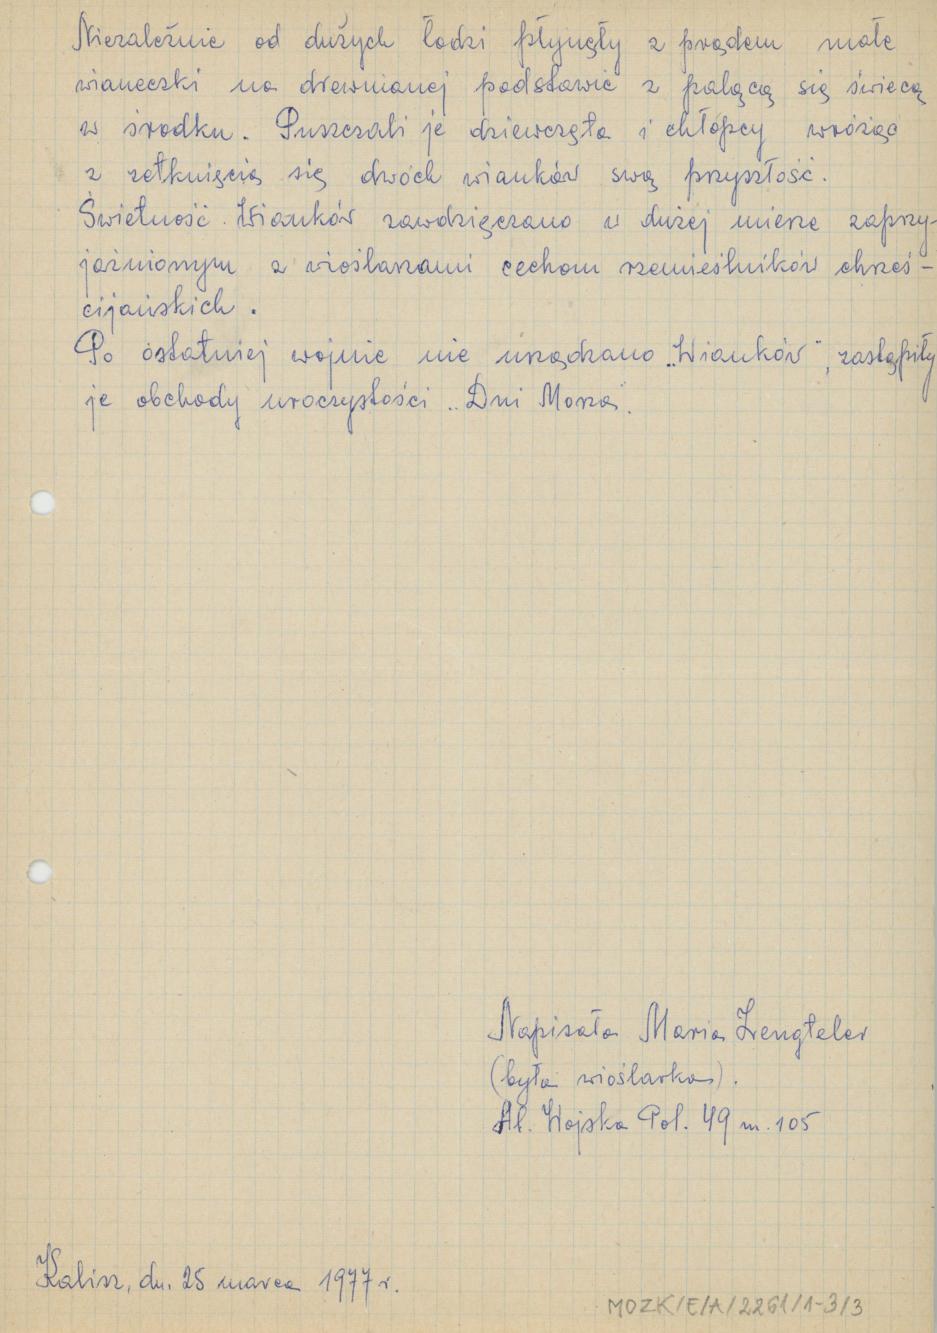 Niezależnie od dużych łodzi płynęły z prądem małe
wianeczki na drewnianej podstawie z palącą się świecą
w środku. Puszczali je dziewczęta i chłopcy wróżąc
z zetknięcia się dwóch wianków swą przyszłość.
Świetność Wianków zawdzięczano w dużej mierze zaprzy-
jaźnionym z wioślarzami cechom rzemieślników chrześ-
cijańskich.
Po ostatniej wojnie nie urządzano „Wianków", zastąpiły
je obchody uroczystości „Dni Morza".
Napisała Maria
(była wioślarka).
Al. Wojska Pol. 49 m. 105
Kalisz, dn. 25 marca 1977 r.
MOZK/E/A/2261/1-3/3